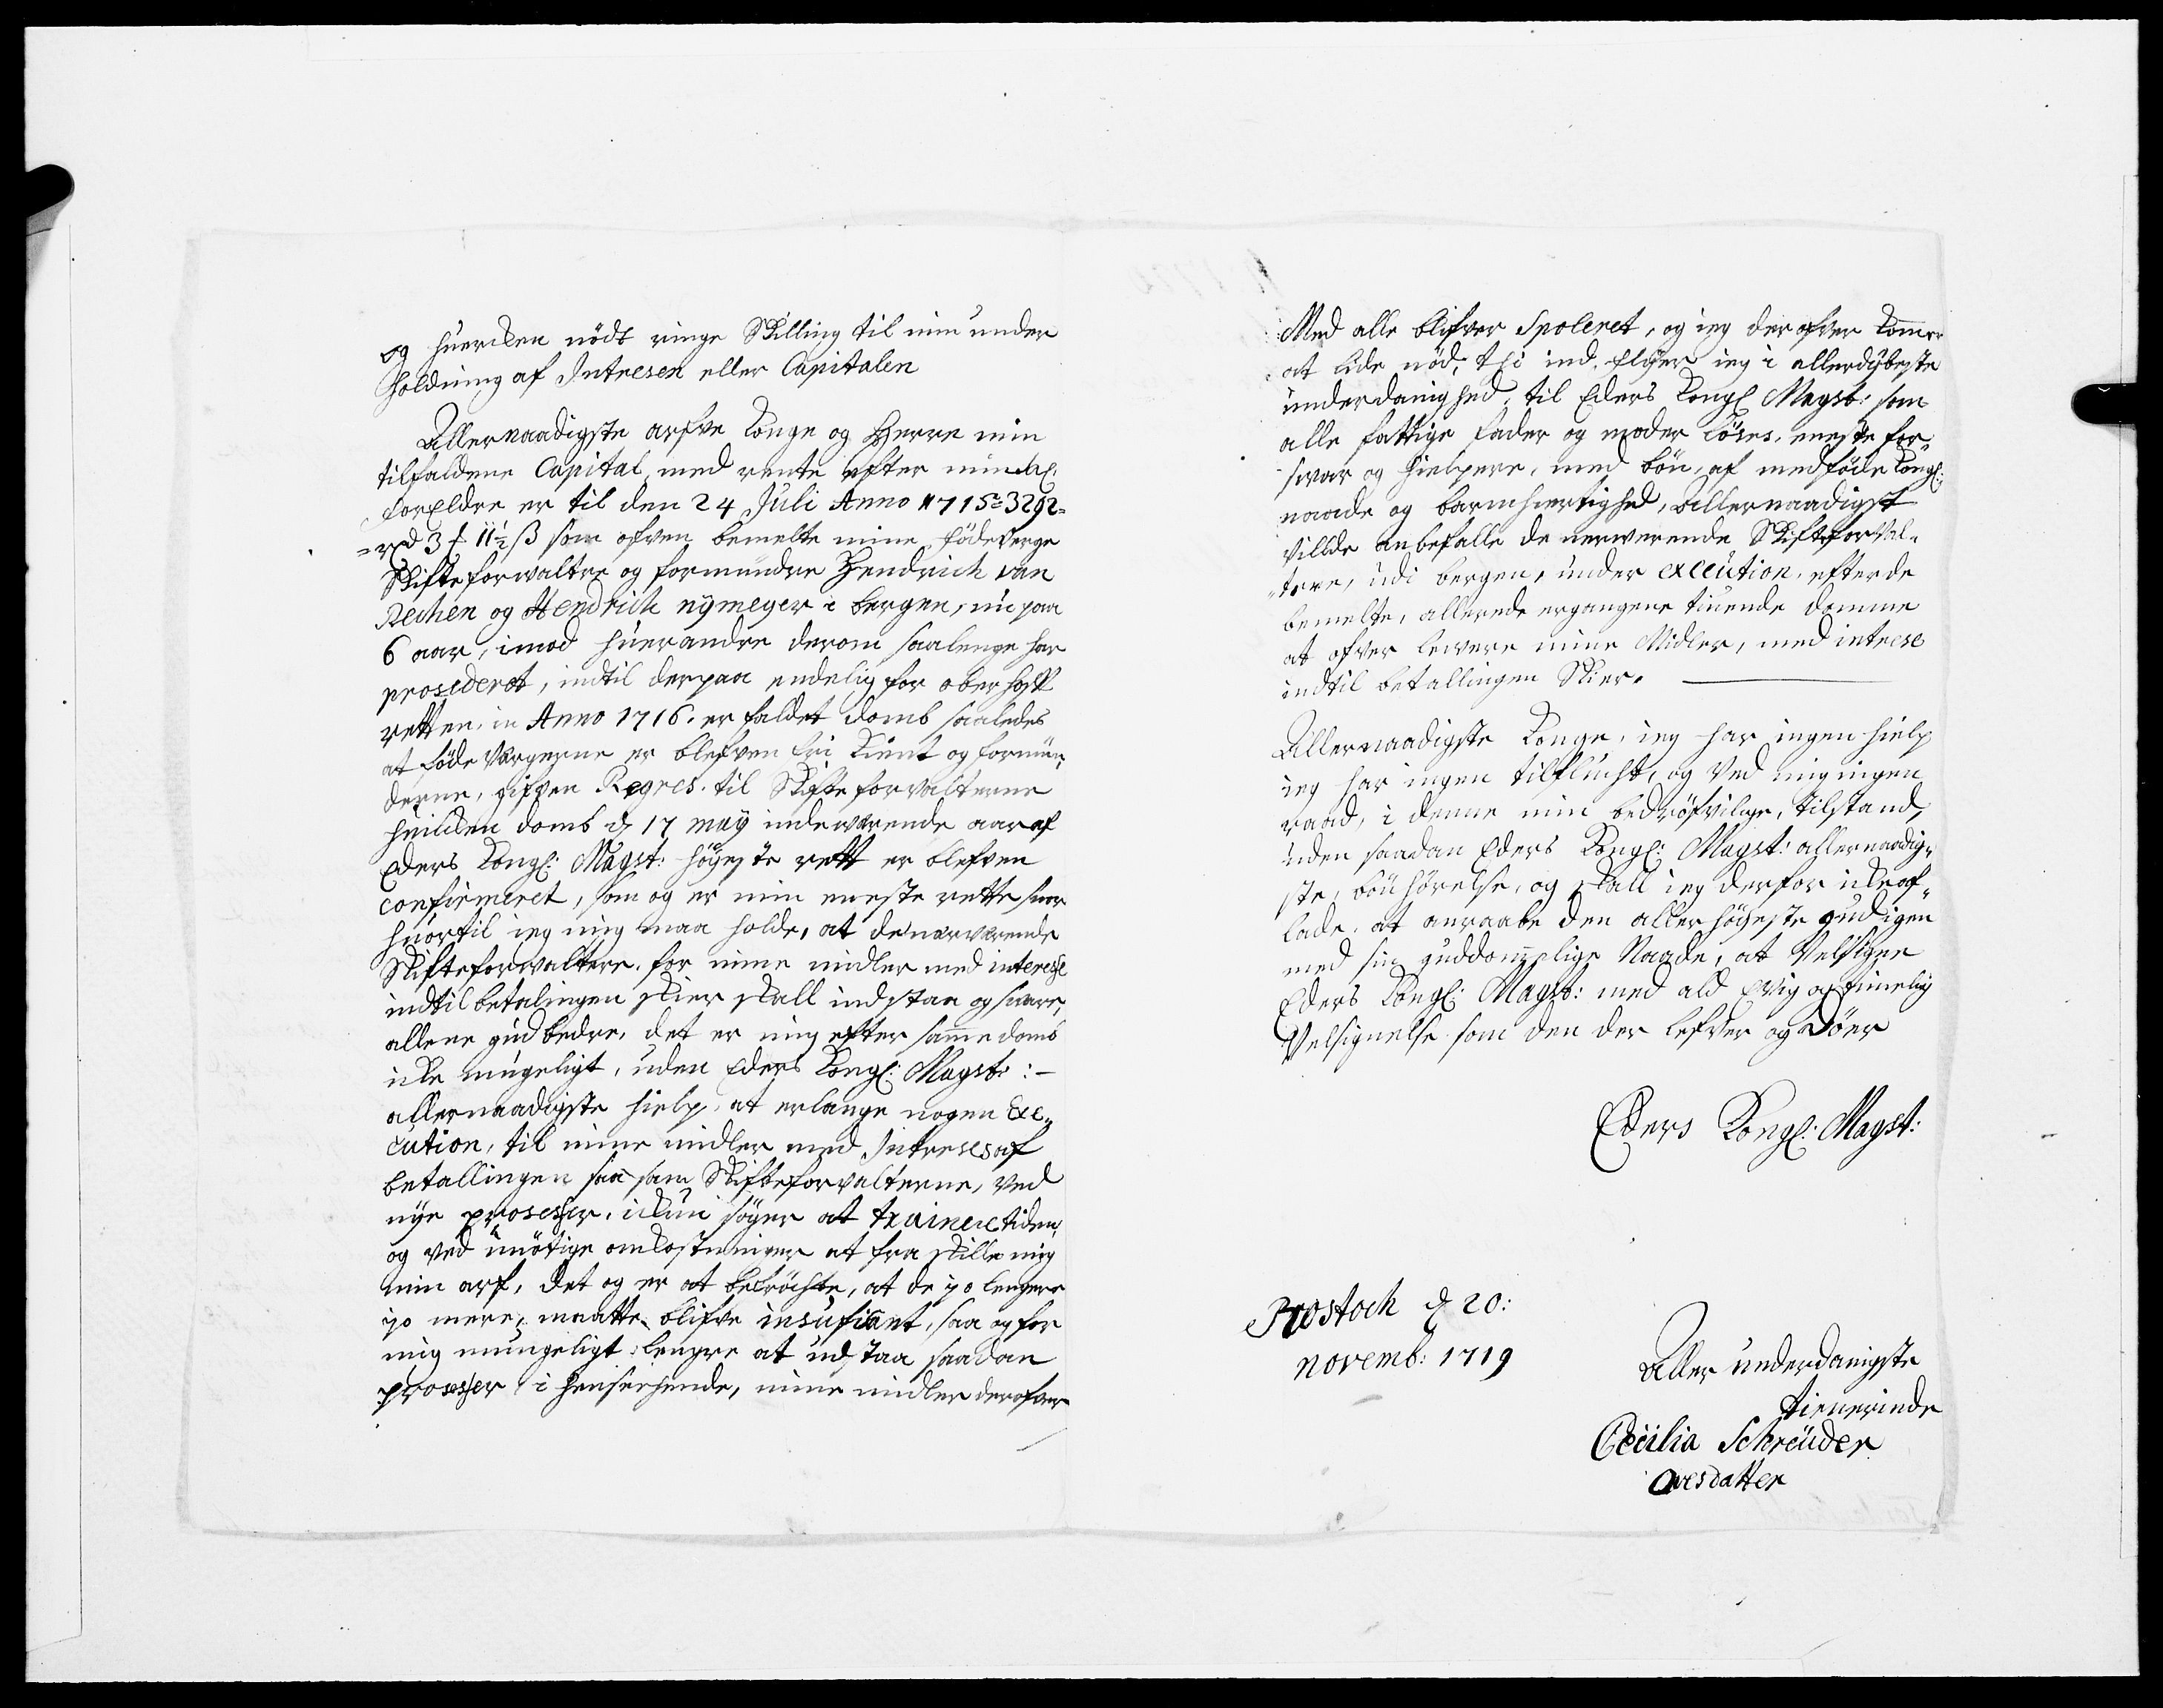 og huercken nödt ringe Skilling til min under
holdning af Intresen eller Capitalen
Allernaadigste arfve Konge og Herre min
tilfaldene Capital med rente efter min Sal:
forEldre er til den 24 Juli Anno 1715 = 3292 =
= rd 3 f 11½ ß som ofven bemelte mine föde verge
Skifteforwaltre og formundre Hendrich van
Rechen og Hendrich nÿmeyer i bergen, nu paa
6 aar, imod huerandre derom saalenge har
prosederet, indtil derpaa endelig for oberhoff
retten, in Anno 1716. er faldet domb saaledes
at föde Vergerne er blefven fri Kient og formün,
derne, gifven Regres. til Skifteforvalterne
huilcken domb d 17 maÿ indewærende aar af
Eders Kongl: Mayst: höÿeste rett er blefven
confirmeret, som og er min eneste rettesnor
huortil ieg mig maa holde, at de nærværende
Skifteforwaltere. for mine midler med interesse
indtil betalingen skier skall indstaa og svare,
allene gud bedre, det er mig efter samme domb
icke mugeligt, uden Eders Kongl: Mayst: :-
allernaadigste hielp, at erlange nogen Exe,,
cution, til mine midler med Intreses af
betallingen saa som Skifteforvalterne, ved
nÿe prosesser, ickun söger at trainere tiden,
og ved unötige omkostninger at fra skille mig
min arf, det og er at befröchte, at de jo lengere
jo mere, maatte blifve insufisant, saa og for
mig mungeligt lengre at udstaa saadan
prosesser i henseehende, mine midler derofver
Med alle blifver Spoleret, og ieg der ofver kommer
at lide nöd, thi ind flÿer ieg i allerdÿbeste
underdanighed, til Eders Kongl Mayst: som
alle fattige fader og moder löses, eneste for,
svar og hielpere, med bön, af medföde Kongl:
naade og barmhiertighed, allernaadigst
villde anbefalle de nerwerende Skifteforval,,
,,tere, udi bergen, under excution, efter de
bemelte, allerede ergangene tuende domme
at ofver levere mine Midler, med intrese
indtil betallingen Skier.
Allernaadigste Konge, ieg har ingen hielp
ieg har ingen tilflucht, og Ved mig ingen
raad, i denne min bedröfvilige, tilstand,
uden saadan Eders Kongl: Mayst: allernaadig,,
ste, bönhörelse, og skall ieg derfor icke af,,
lade, at anraabe den aller höÿeste gud igen
med sin guddommelige Naade, at Velsigne
Eders Kongl: Mayst: med ald Evig og timelig
Velsignelse som den der lefver og Döer
Eders Kongl: Mayst:
Rostoch d 20:
novemb: 1719
Aller underdanigste
tienerinde
Cecilia Schreuder
Ovesdatter